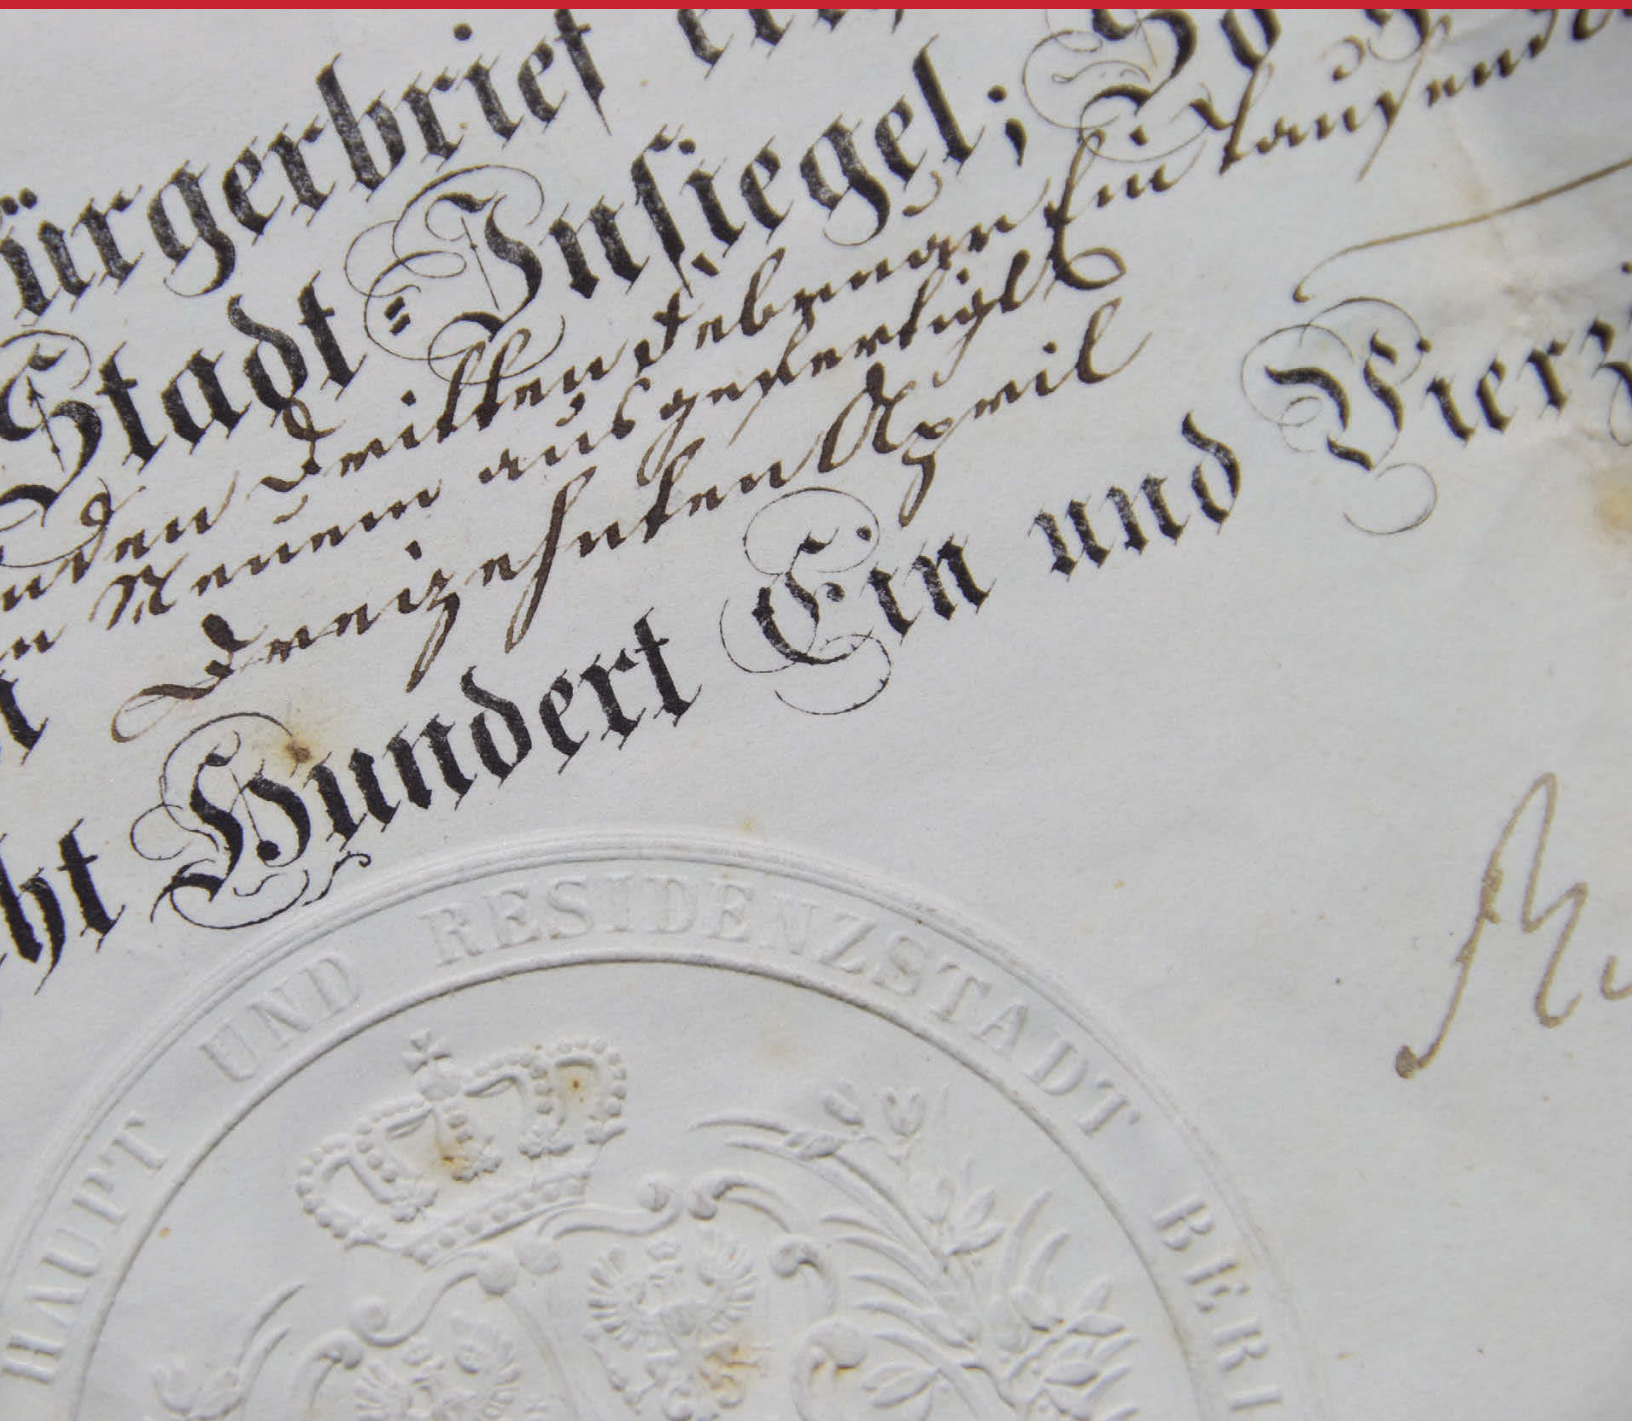 ürgerbrief
Stadt=Inſiegel; So
den Dritten Februar Ein tauſend
Neuem ausgefertigt
Dreizehnten April
cht Hundert Ein und Vierz
HAUPT UND RESIDENZSTADT BERL